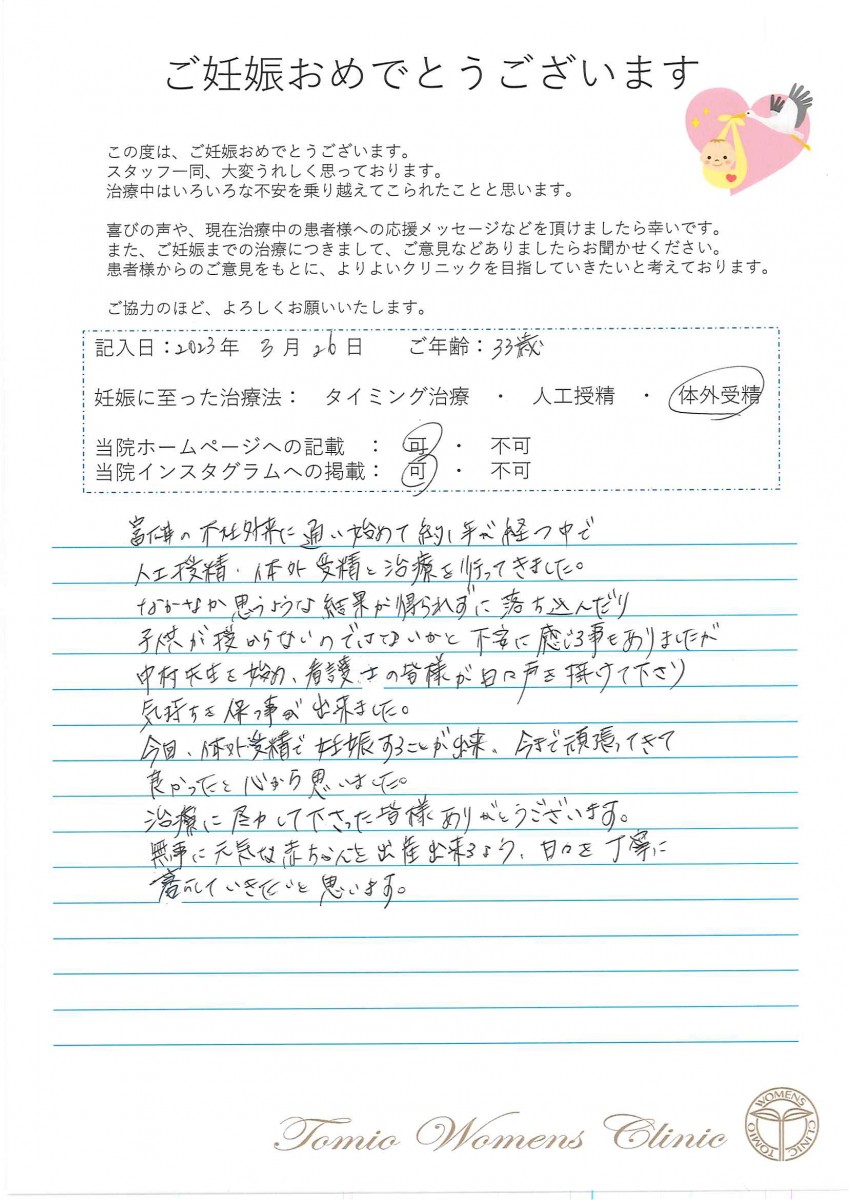 ご妊娠おめでとうございます
この度は、ご妊娠おめでとうございます。
スタッフ一同、大変うれしく思っております。
治療中はいろいろな不安を乗り越えてこられたことと思います。
喜びの声や、現在治療中の患者様への応援メッセージなどを頂けましたら幸いです。
また、ご妊娠までの治療につきまして、ご意見などありましたらお聞かせください。
患者様からのご意見をもとに、よりよいクリニックを目指していきたいと考えております。
ご協力のほど、よろしくお願いいたします。
記入日：2023年 3月 26日 ご年齢：33歳
妊娠に至った治療法： タイミング治療 ・ 人工授精 ・ 体外受精
当院ホームページへの記載 ： 可 ・ 不可
当院インスタグラムへの掲載： 可 ・ 不可
の不妊外来に通い始めて約1年が経つ中で
人工授精、体外受精と治療を行ってきました。
なかなか思うような結果が得られずに落ち込んだり
子供が授からないのではないかと不安に感じる事もありましたが
中村先生を始め、看護士の皆様が日々声を掛けて下さり
気持ちを保つ事が出来ました。
今回、体外受精で妊娠することが出来、今まで頑張ってきて
良かったと心から思いました。
治療に尽力して下さった皆様ありがとうございます。
無事に元気な赤ちゃんを出産出来るよう、日々を丁寧に
していきたいと思います。
Tomio Womens Clinic
TOMIO WOMENS CLINIC